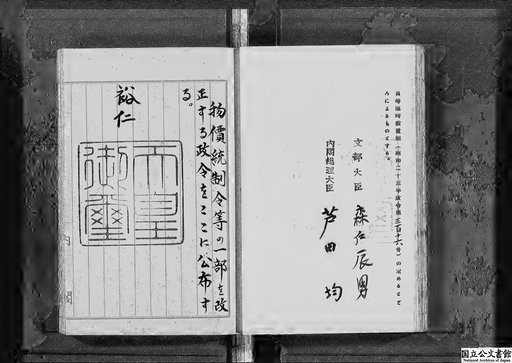 員等臨時設置制(昭和二十三年政令第三百十六号)の定めるとこ
ろによるものとする。
文部大臣 森戸辰男
内閣総理大臣 芦田均
物價統制令等の一部を改
正する政令をここに公布す
る。
裕仁
天皇御璽
内 閣
国立公文書館
National Archives of Japan